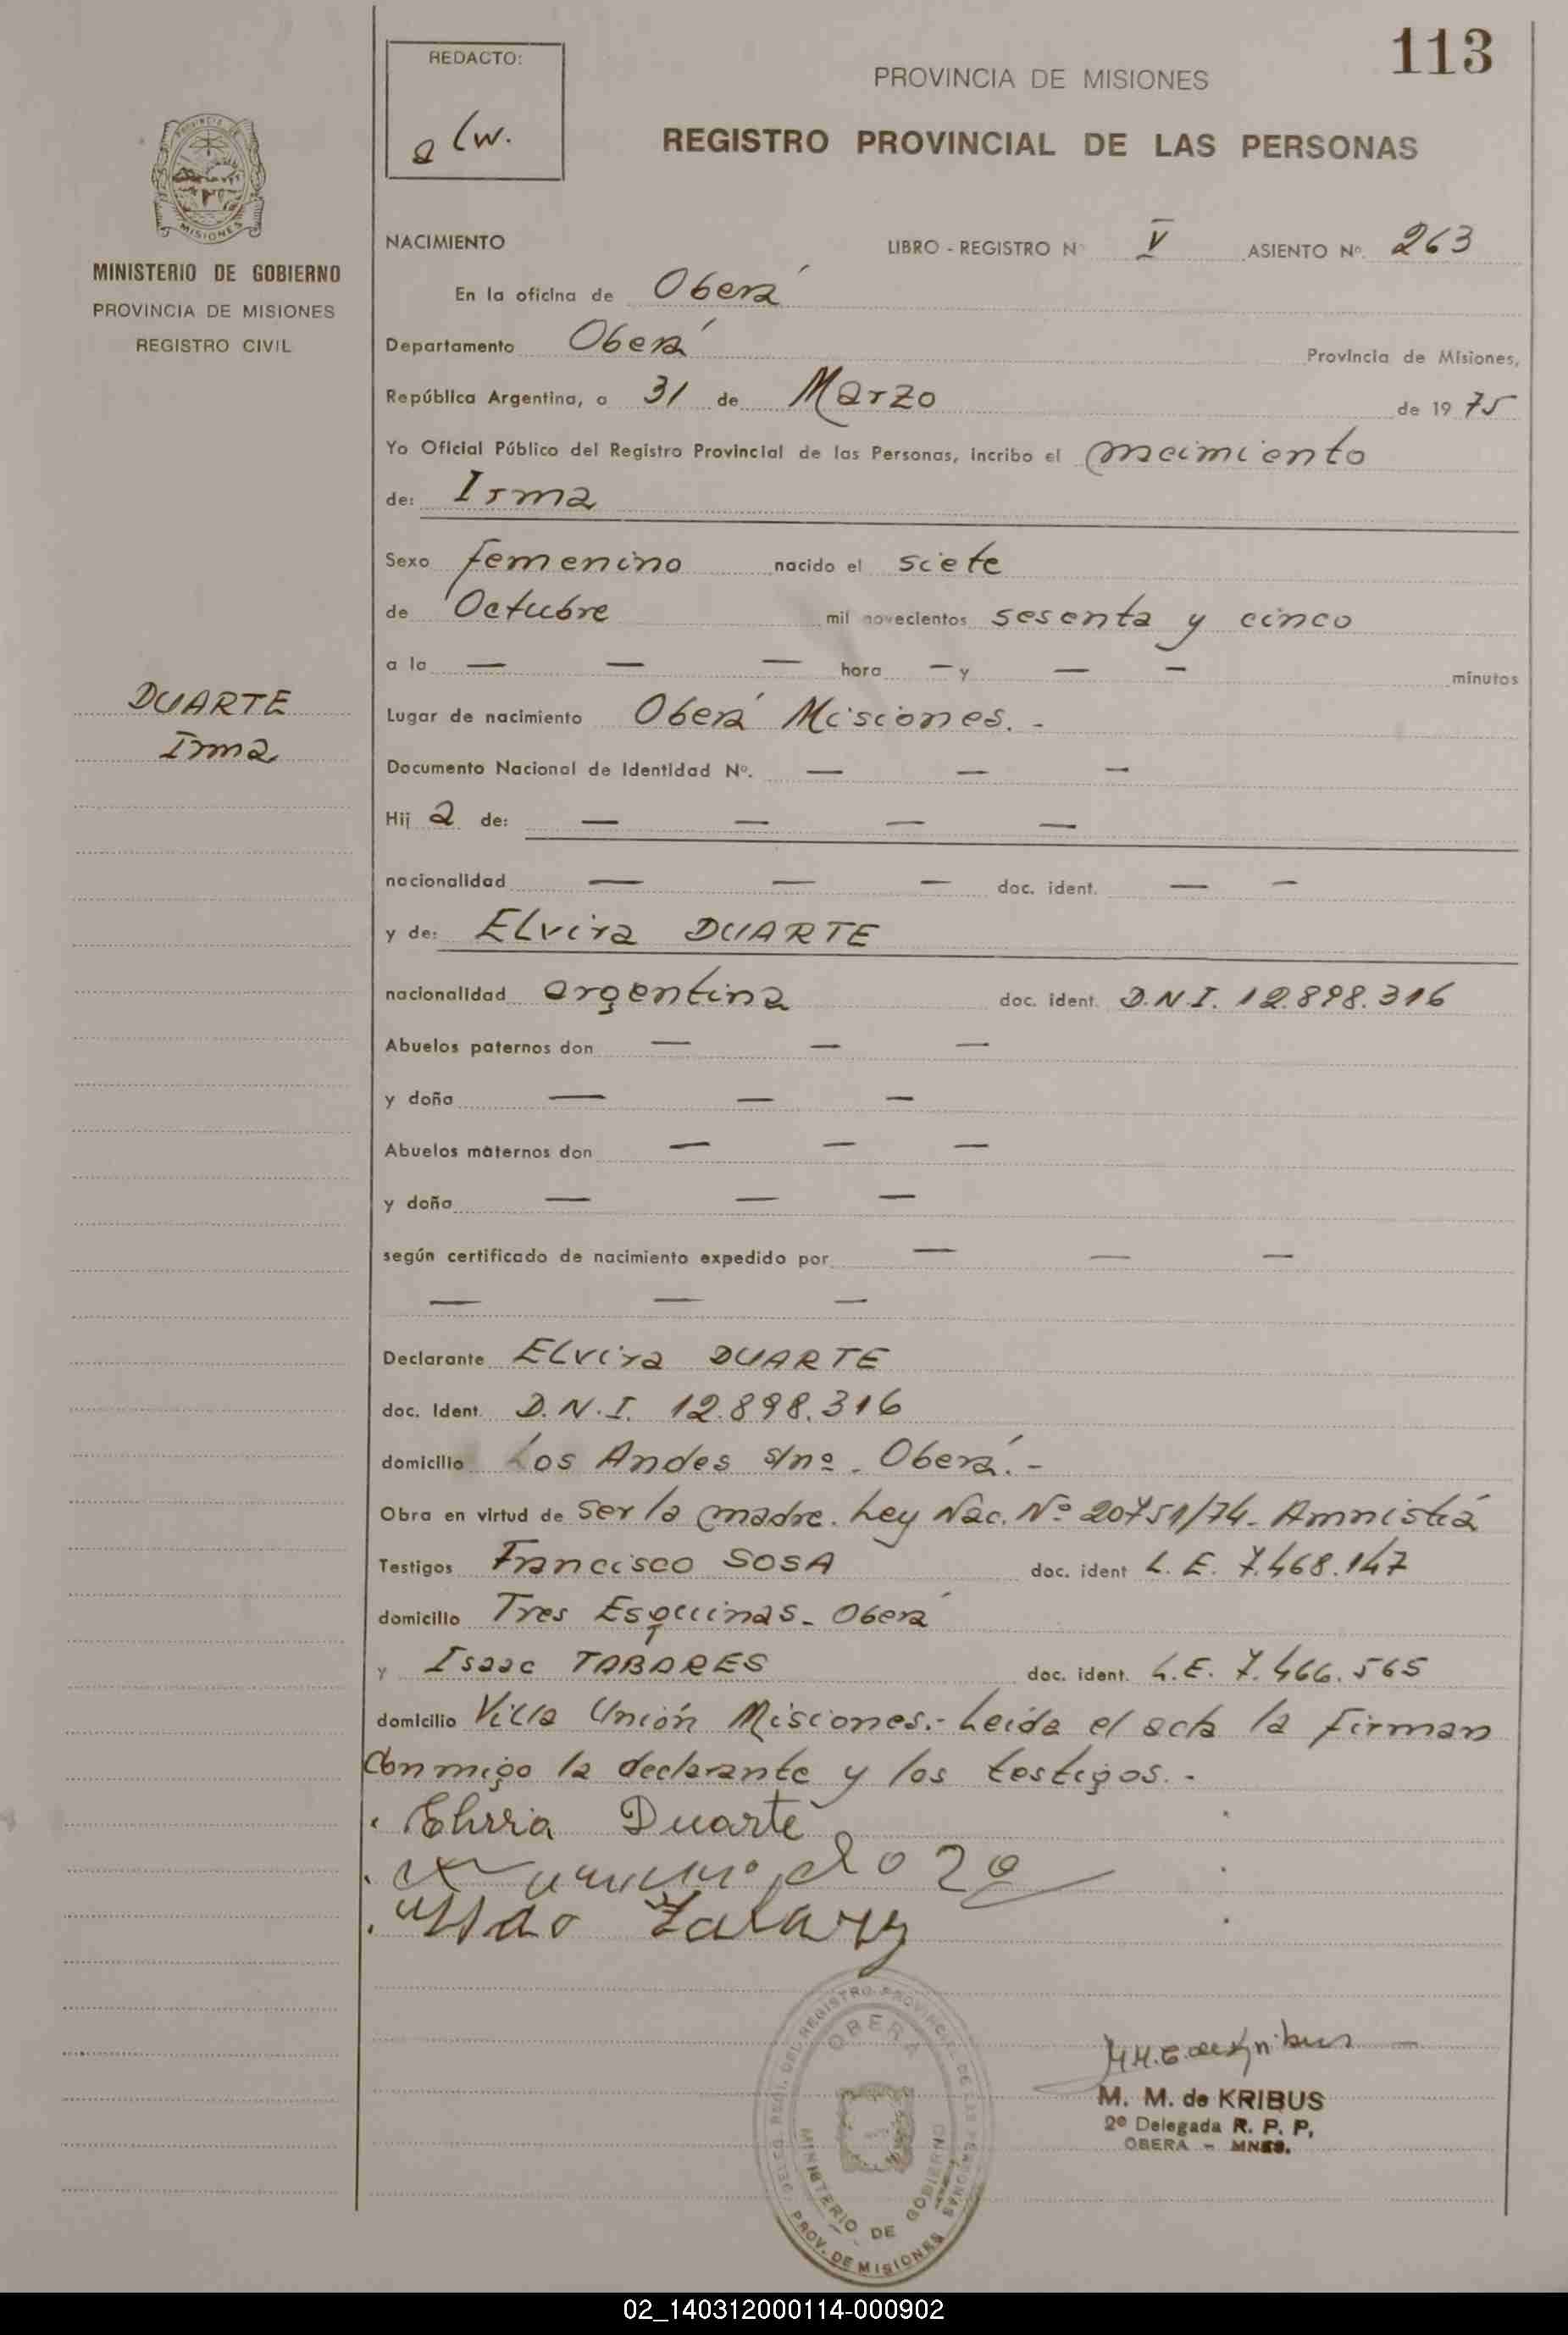 113
REDACTO:
PROVINCIA DE MISIONES
REGISTRO PROVINCIAL DE LAS PERSONAS
MISIONES
MINISTERIO DE GOBIERNO
PROVINCIA DE MISIONES
REGISTRO CIVIL
NACIMIENTO LIBRO - REGISTRO Nº V ASIENTO Nº. 263
En la oficina de Oberá
Departamento Oberá Provincia de Misiones,
República Argentina, a 31 de Marzo de 1975
Yo Oficial Público del Registro Provincial de las Personas, incribo el nacimiento
de: Irma
Sexo femenino nacido el siete
de Octubre mil novecientos sesenta y cinco
a la — — — hora — y — — minutos
DUARTE
Irma
Lugar de nacimiento Oberá Misiones. -
Documento Nacional de Identidad Nº. — — —
Hij a de: — — — —
nacionalidad — — — doc. ident. — —
y de: Elvira DUARTE
nacionalidad argentina doc. ident. D.N.I. 12.898.316
Abuelos paternos don — — —
y doña — — —
Abuelos maternos don — — —
y doña — — —
según certificado de nacimiento expedido por — — —
— — —
Declarante Elvira DUARTE
doc. Ident. D.N.I. 12.898.316
domicilio Los Andes s/nº. Oberá. -
Obra en virtud de ser la madre. Ley Nac. Nº 20751/74. Amnistía
Testigos Francisco SOSA doc. ident L.E. 7.468.147
domicilio Tres Esquinas - Oberá
y Isaac TABARES doc. ident. L.E. 7.466.565
domicilio Villa Unión Misiones.- Leída el acta la firman
conmigo la declarante y los testigos. -
Elvira Duarte
OBERA
MINISTERIO DE GOBIERNO
PROV. DE MISIONES
M. M. de KRIBUS
2º Delegada R. P. P.
OBERA - MNES.
02_140312000114-000902